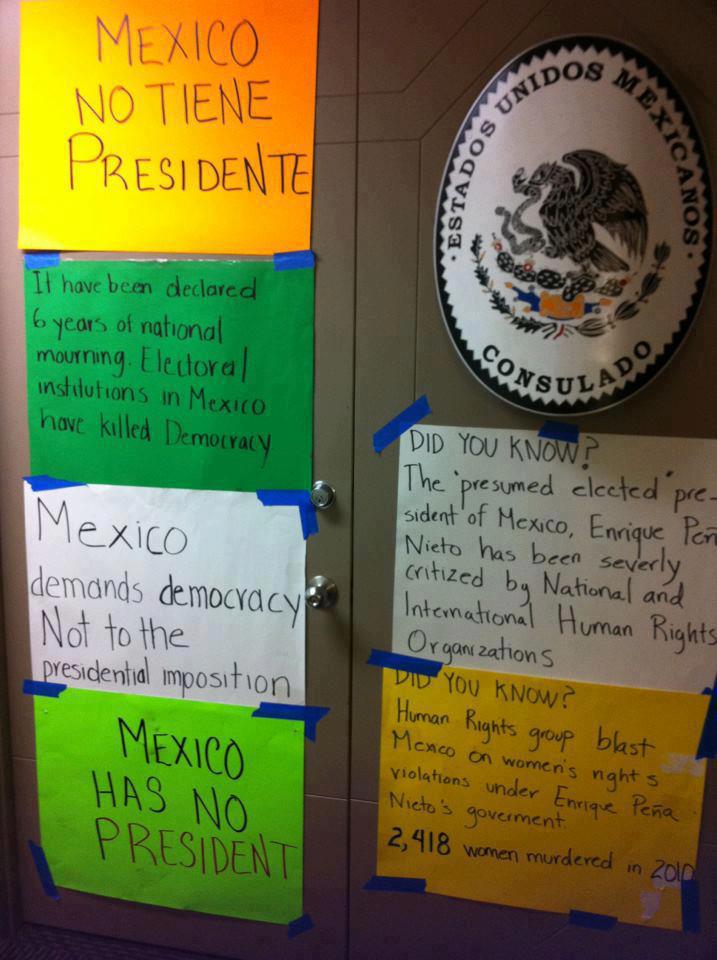 MEXICO
NO TIENE
PRESIDENTE
It have been declared
6 years of national
mourning. Electoral
institutions in Mexico
have killed Democracy
Mexico
demands democracy
Not to the
presidential imposition
MEXICO
HAS NO
PRESIDENT
ESTADOS UNIDOS MEXICANOS
CONSULADO
DID YOU KNOW?
The "presumed elected" pre-
sident of Mexico, Enrique Peñ
Nieto has been severly
critized by National and
International Human Rights
Organizations
DID YOU KNOW?
Human Rights group blast
Mexico on women's right s
violations under Enrique Peña
Nieto's goverment.
2,418 women murdered in 2010